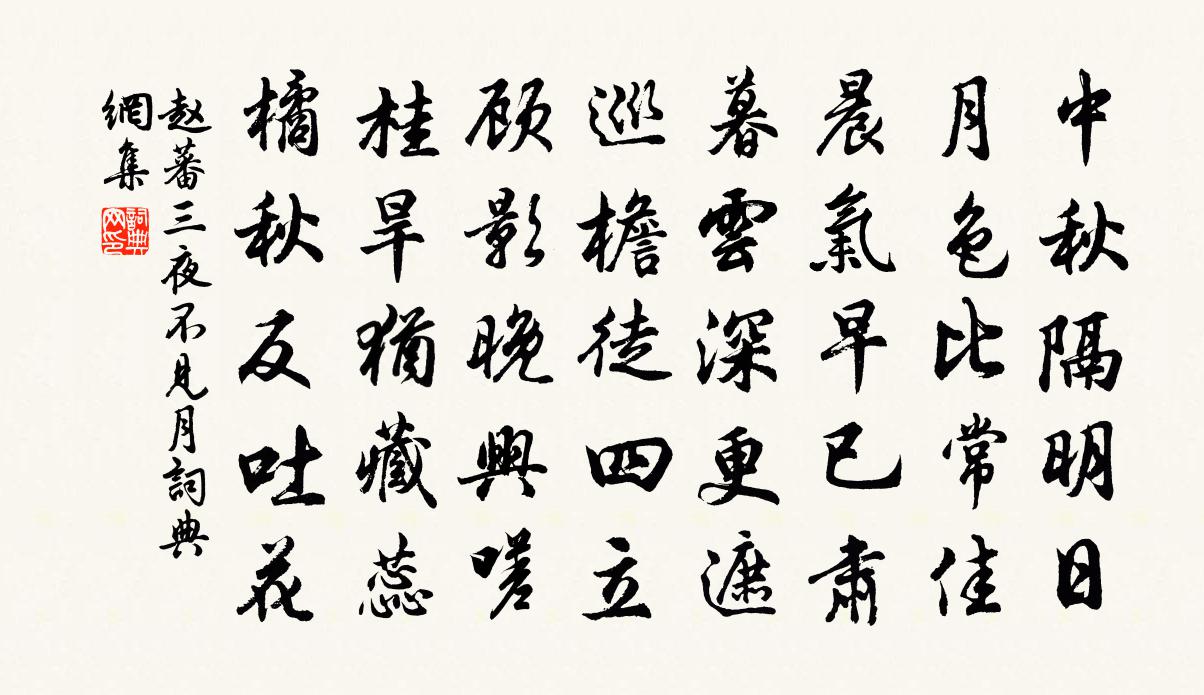 中秋隔明日
月色比常佳
晨氣早已肅
暮雲深更遮
巡檐徒四立
顾影晚興嗟
桂旱猶藏蕊
橘秋反吐花
赵蕃三夜不見月詞典
網集
詞典
网印